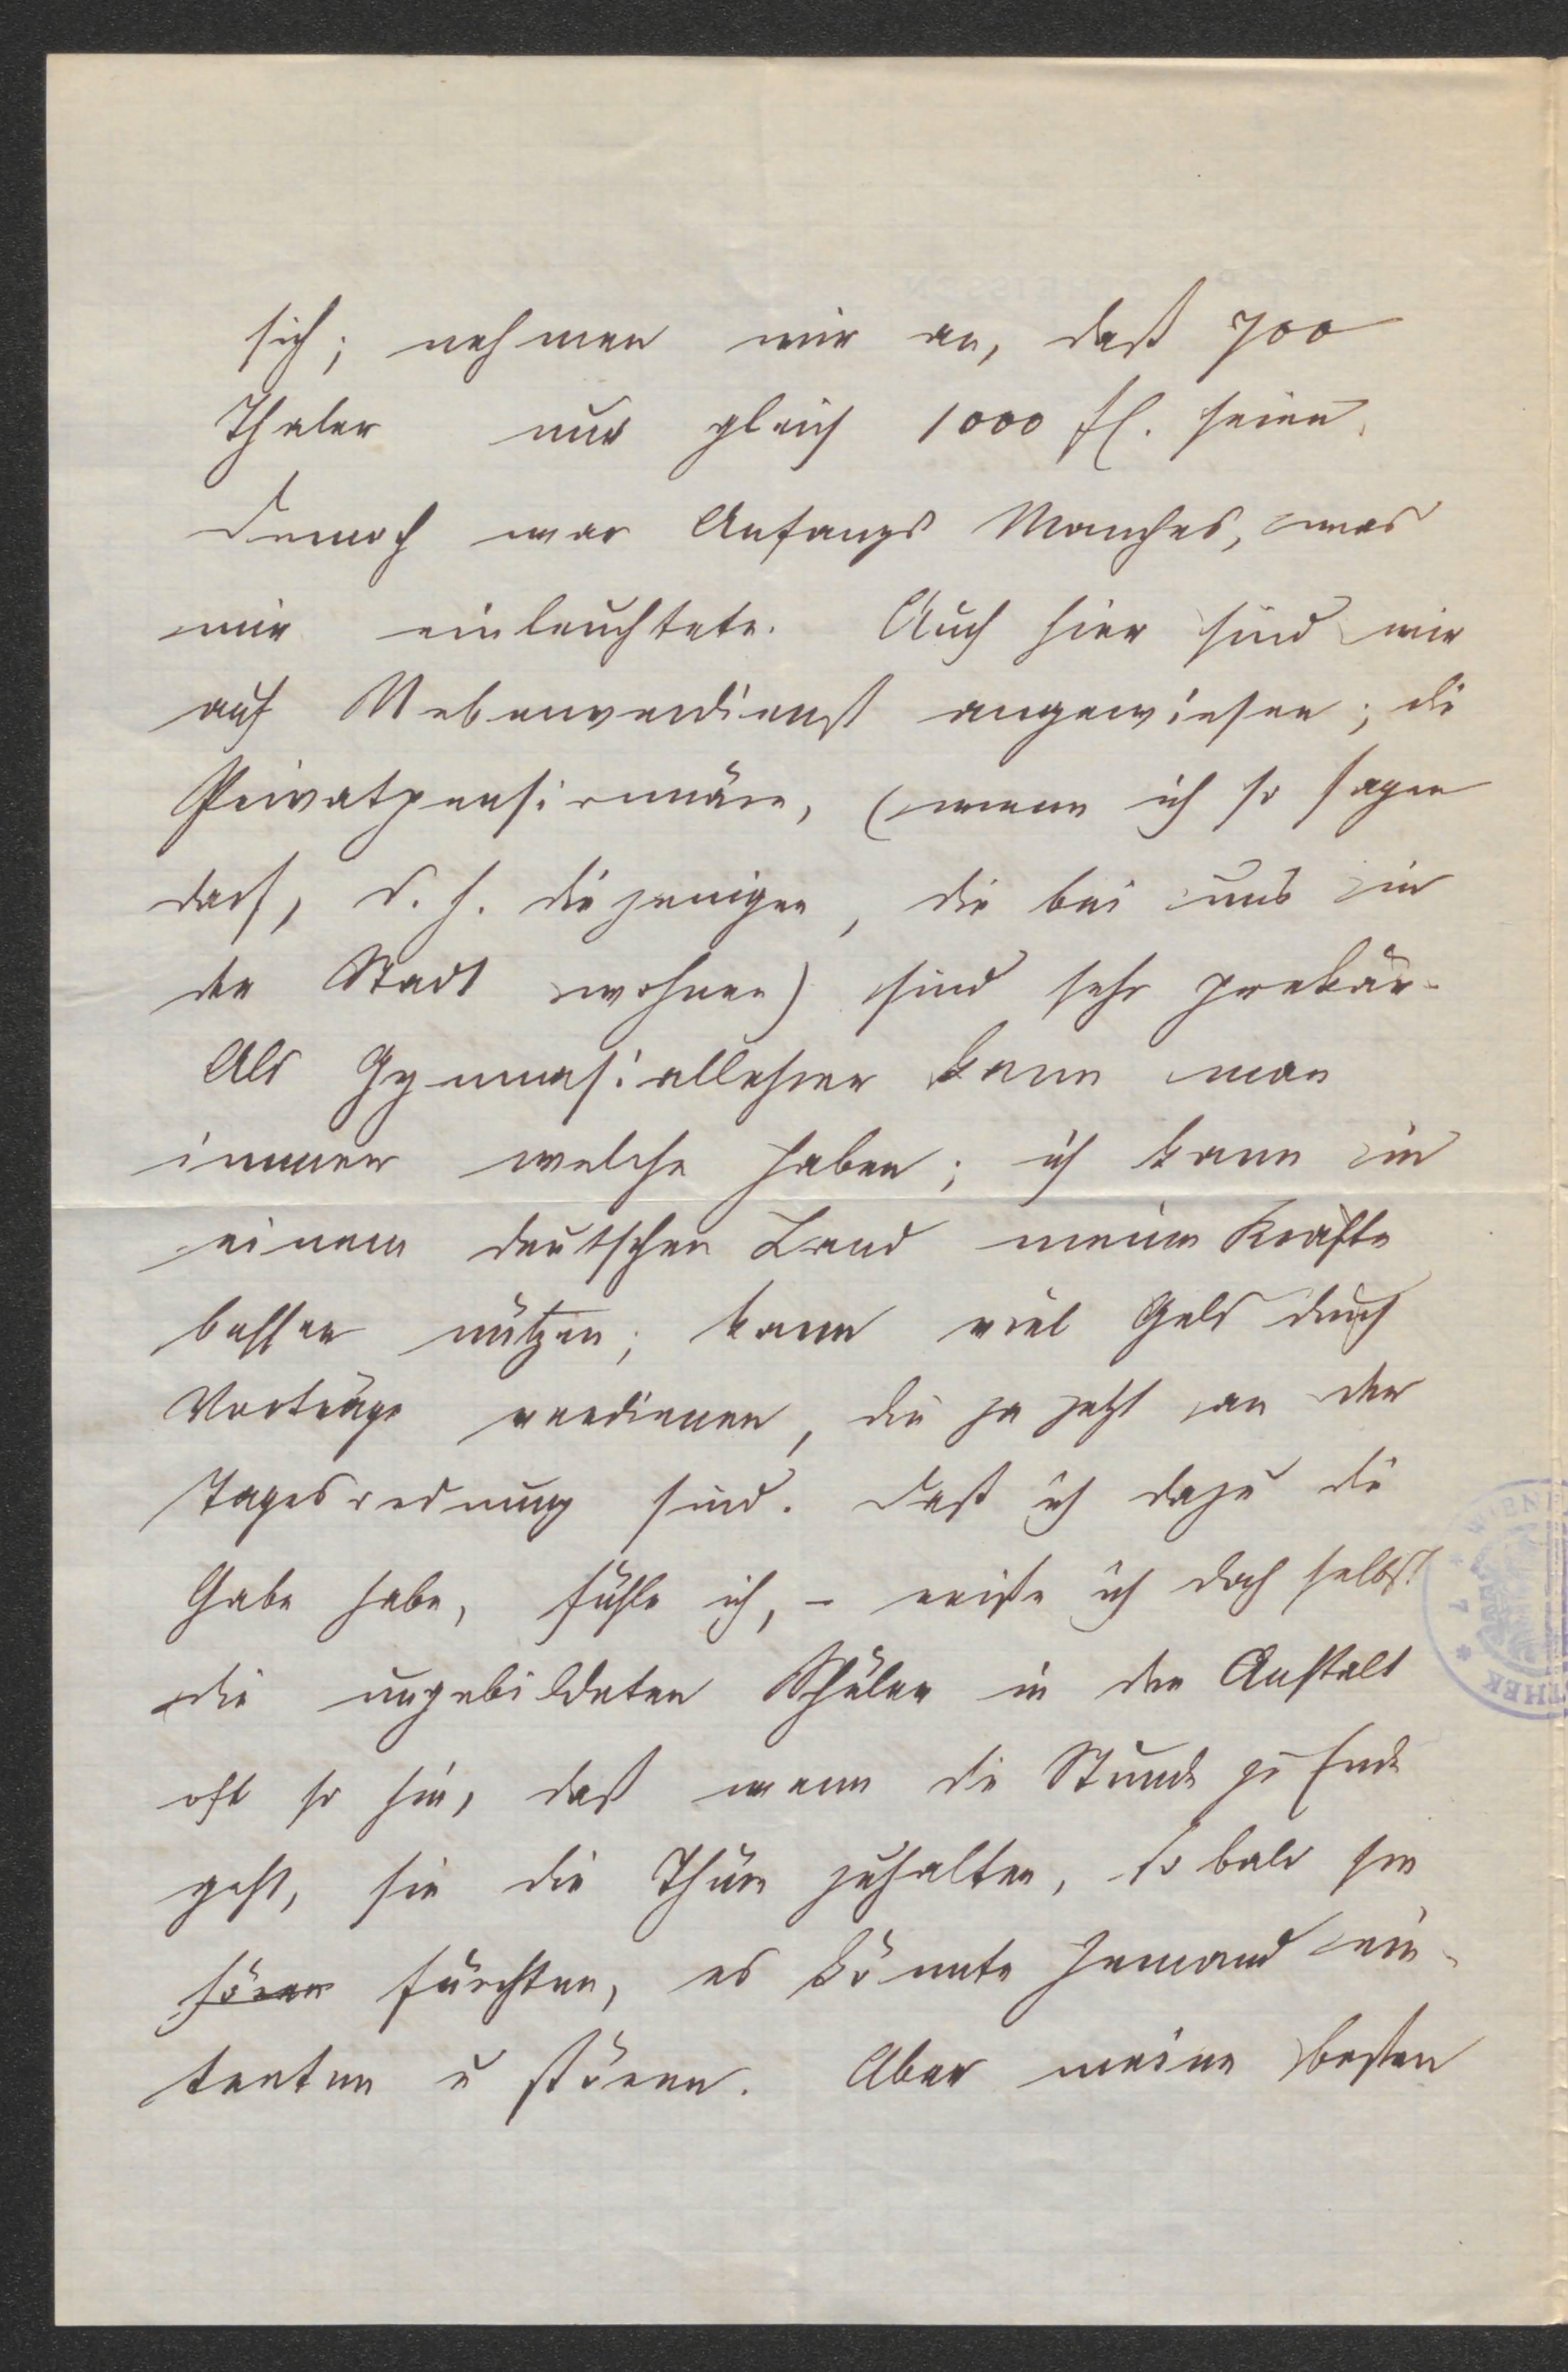 sich; nehmen wir an, daß 700
Thaler nur gleich 1000 fl. seien.
Dennoch war Anfangs Manches, was
mir einleuchtete. Auch hier sind wir
auf Nebenverdienst angewiesen; die
Privatpensionnäre, (wenn ich so sagen
darf, d. h. diejenigen, die bei uns in
der Stadt wohnen) sind sehr prekär.
Als Gymnasiallehrer kann man
immer welche haben; ich kann in
einem deutschen Land meine Kräfte
besser nützen; kann viel Geld durch
Vorträge verdienen, die ja jetzt an der
Tagesordnung sind. Daß ich dazu die
Gabe habe, fühle ich, – reiße ich doch selbst
die ungebildeten Schüler in der Anstalt
oft so hin, daß wenn die Stunde zu Ende
geht, sie die Thüre zuhalten, so bald sie
hören fürchten, es könnte Jemand ein-
treten u stören. Aber meine besten